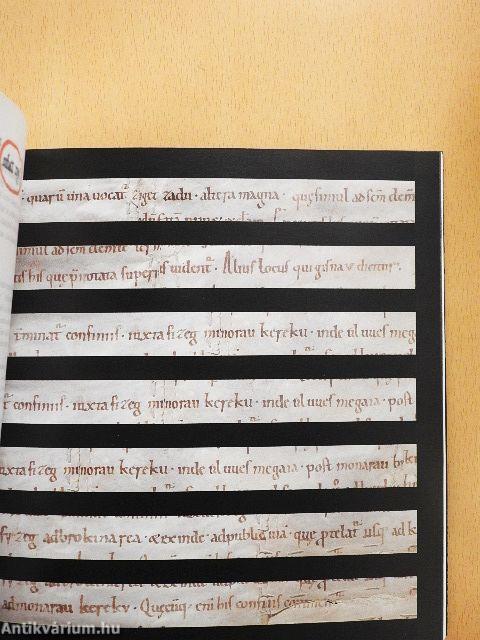 · quarū una uocat᷑ ziget zadu · altera magna · quęsimul adsem̄ dem̄
simul adsem
tis his quę p̄notata superius uident᷑. Alius locus qui gisnav dicitur.
minat᷑ confiniis · iuxta fizeg munorau kereku · inde ul uues mega
t᷑ confiniis · iuxta fizeg munorau kereku · inde ul uues megaia · post
uxta fizeg munorau kereku · inde ul uues megaia · post monarau buk
fyzeg adbrokinarea · & exinde adpublicā uiā · quę ptelat᷑ usq; ad k
admonarau kereku · Quęcūq; eni his confiniis
Antikvárium.hu